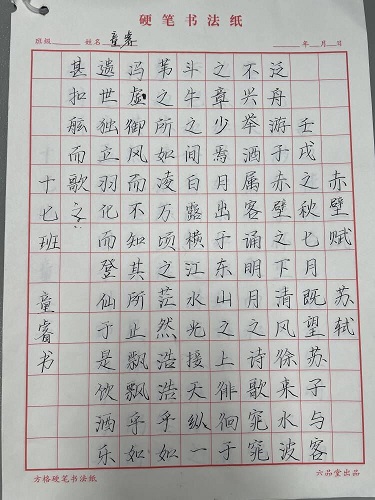 硬笔书法纸
班级 姓名 童睿 年 月 日
赤壁赋 苏轼
壬戌之秋七月既望苏子与客
泛舟游于赤壁之下清风徐来水波
不兴举酒属客诵明月之诗歌窈窕
之章少焉月出于东山之上徘徊于
斗牛之间白露横江水光接天纵一
苇之所如凌万顷之茫然浩浩乎如
冯虚御风而不知其所止飘飘乎如
遗世独立羽化而登仙于是饮酒乐
甚扣舷而歌之
十七班 童睿书
方格硬笔书法纸 六品堂出品